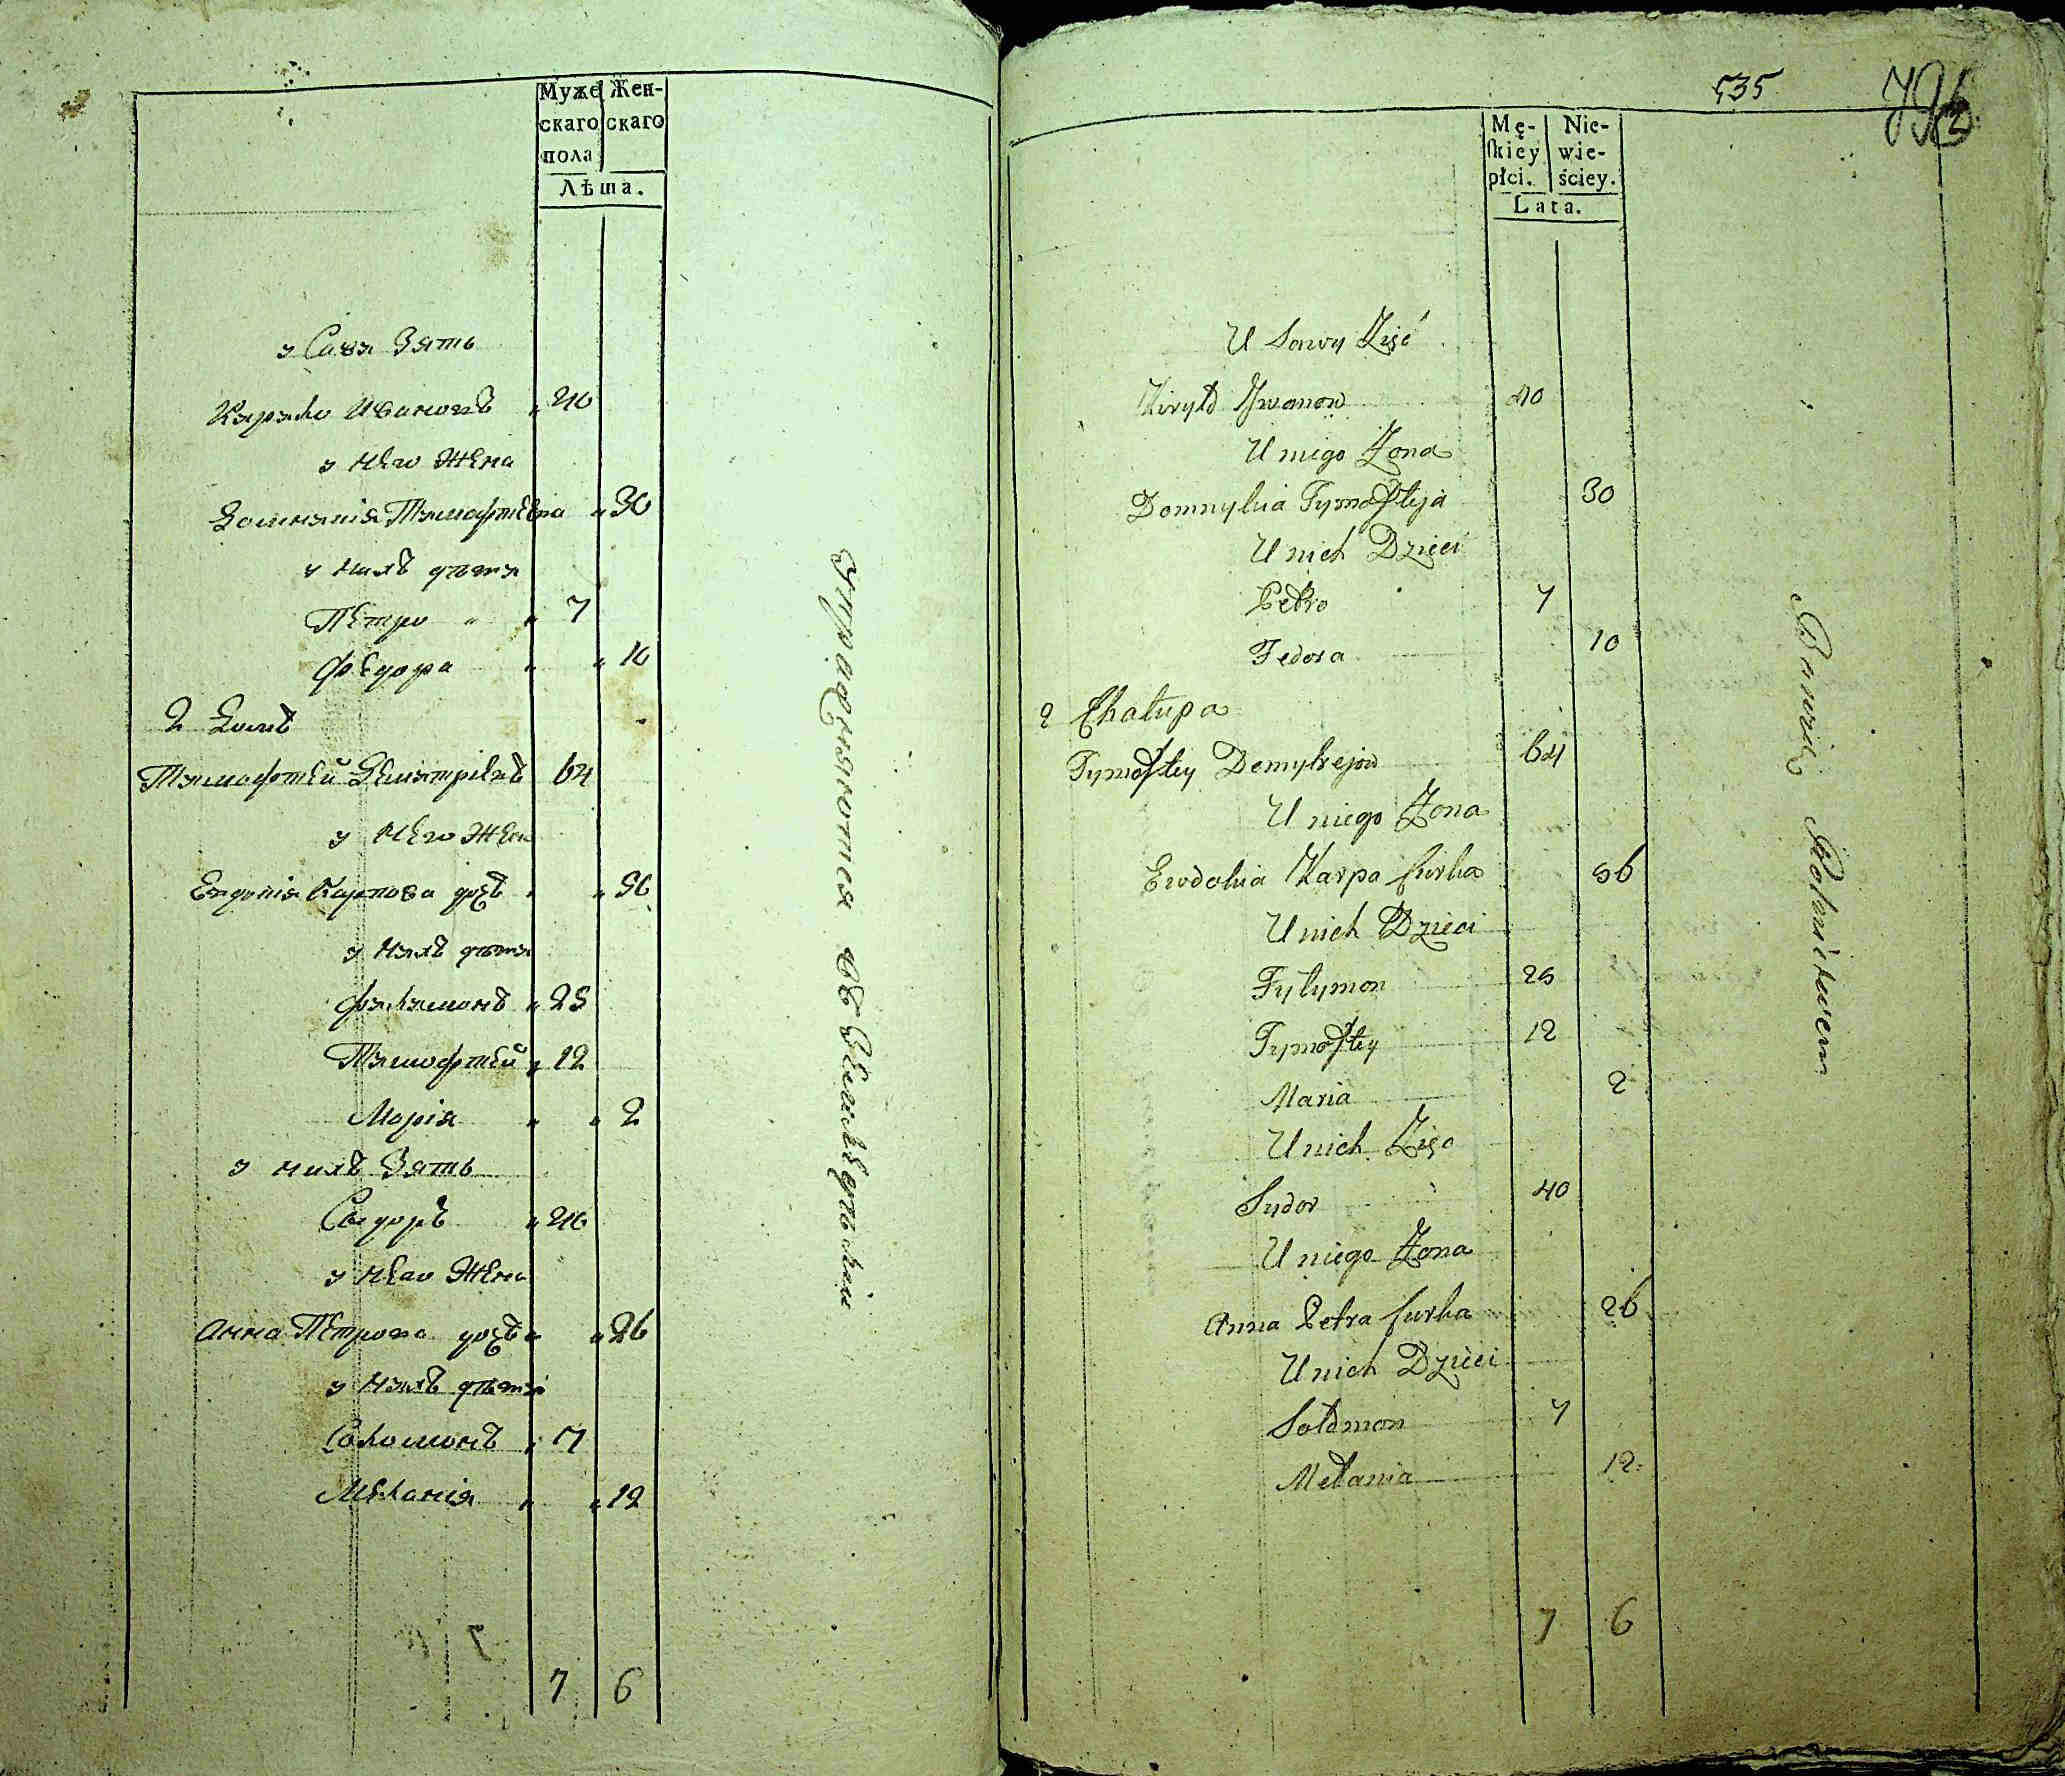 Муже Жен-
скаго скаго
пола
Лѣта.
у Савы Зять
Кирило Ивановъ " 40
у него Жена
Домникія Тимофтѣева " 30
у нихъ дѣти
Петро " " 7
Федора " " 10
2 Домъ
Тимофтей Демитріевъ 64
у него Жена
Евдокія Карпова дочъ " " 56
у нихъ дѣти
Филимонъ " 25
Тимофтей " 12
Марія " " 2
у нихъ Зять
Сидоръ " 40
у него Жена
Анна Петрова дочъ " " 26
у нихъ дѣти
Соломонъ " 7
Меланія " " 12
7 6
упражняются въ Земледѣліи
535
792
Mę- Nie-
skiey wie-
płci. ściey.
Lata.
U Sawy Zięć
Kiryło Jwanow 40
U niego Żona
Domnykia Tymofteja 30
U nich Dzieci
Petro 7
Fedora 10
2 Chałupa
Tymoftey Demytrejow 64
U niego Żona
Ewdokia Karpa curka 56
U nich Dzieci
Fyłymon 25
Tymoftey 12
Maria 2
U nich Zięć
Sydor 40
U niego Żona
Anna Petra curka 26
U nich Dzieci
Sołomon 7
Mełania 12
7 6
Bawią Rolnictwem